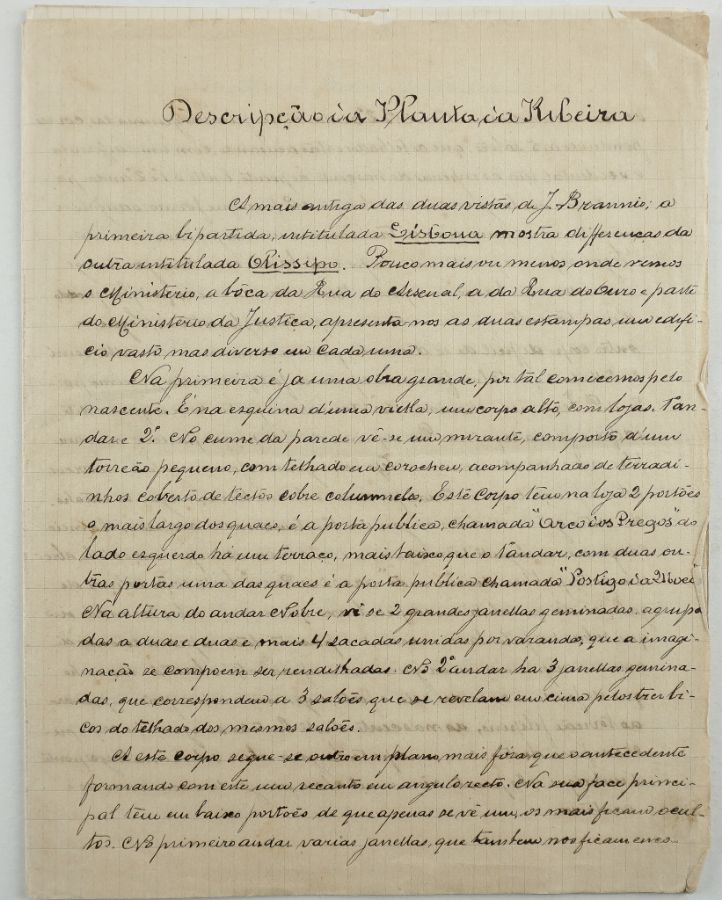 Descripção da Planta da Ribeira
A mais antiga das duas vistas, de J. Braunio; a
primeira bipartida, intitulada Lisbona mostra differenças da
outra intitulada Olissipo. Pouco mais ou menos, onde vemos
o Ministerio, a bôca da Rua do Arsenal, a da Rua do Ouro e parte
do Ministerio da Justiça, apresenta nos as duas estampas, um edifi-
cio vasto mas diverso em cada uma.
Na primeira é ja uma obra grande, por tal comecemos pelo
nascente. É na esquina d'uma viella, um corpo alto, com lojas, 1andar
dar e 2º. No cume da parede vê-se um mirante, composto d'um
torreão pequeno, com telhado em corocheu, acompanhado de terradi-
nhos coberto de tectos sobre columnelo. Este corpo tem na loja 2 portões
o mais largo dos quaes, é a porta publica, chamada "Arco dos Pregos" do
lado esquerdo há um terraço, mais baixo que o 1andar, com duas ou-
tras portas uma das quaes é a porta publica chamada "Postigo da
Na altura do andar Nobre, vê se 2 grandes janellas geminadas, agrupa
das a duas e duas e mais 4 sacadas unidas por varandas, que a imagi-
nação se compoem ser rendilhadas. No 2º andar ha 3 janellas gemina-
das, que correspondem a 3 salões, que se revelam em cima pelos trez bi-
cos do telhado dos mesmos salões.
A este corpo segue-se outro em plano mais fóra que o antecedente
formando com este um recanto em angulo recto. Na sua face princi-
pal têm em baixo portões de que apenas se vê um, os mais ficam ocul-
tos. No primeiro andar varias janellas, que tambem nos ficam enco-